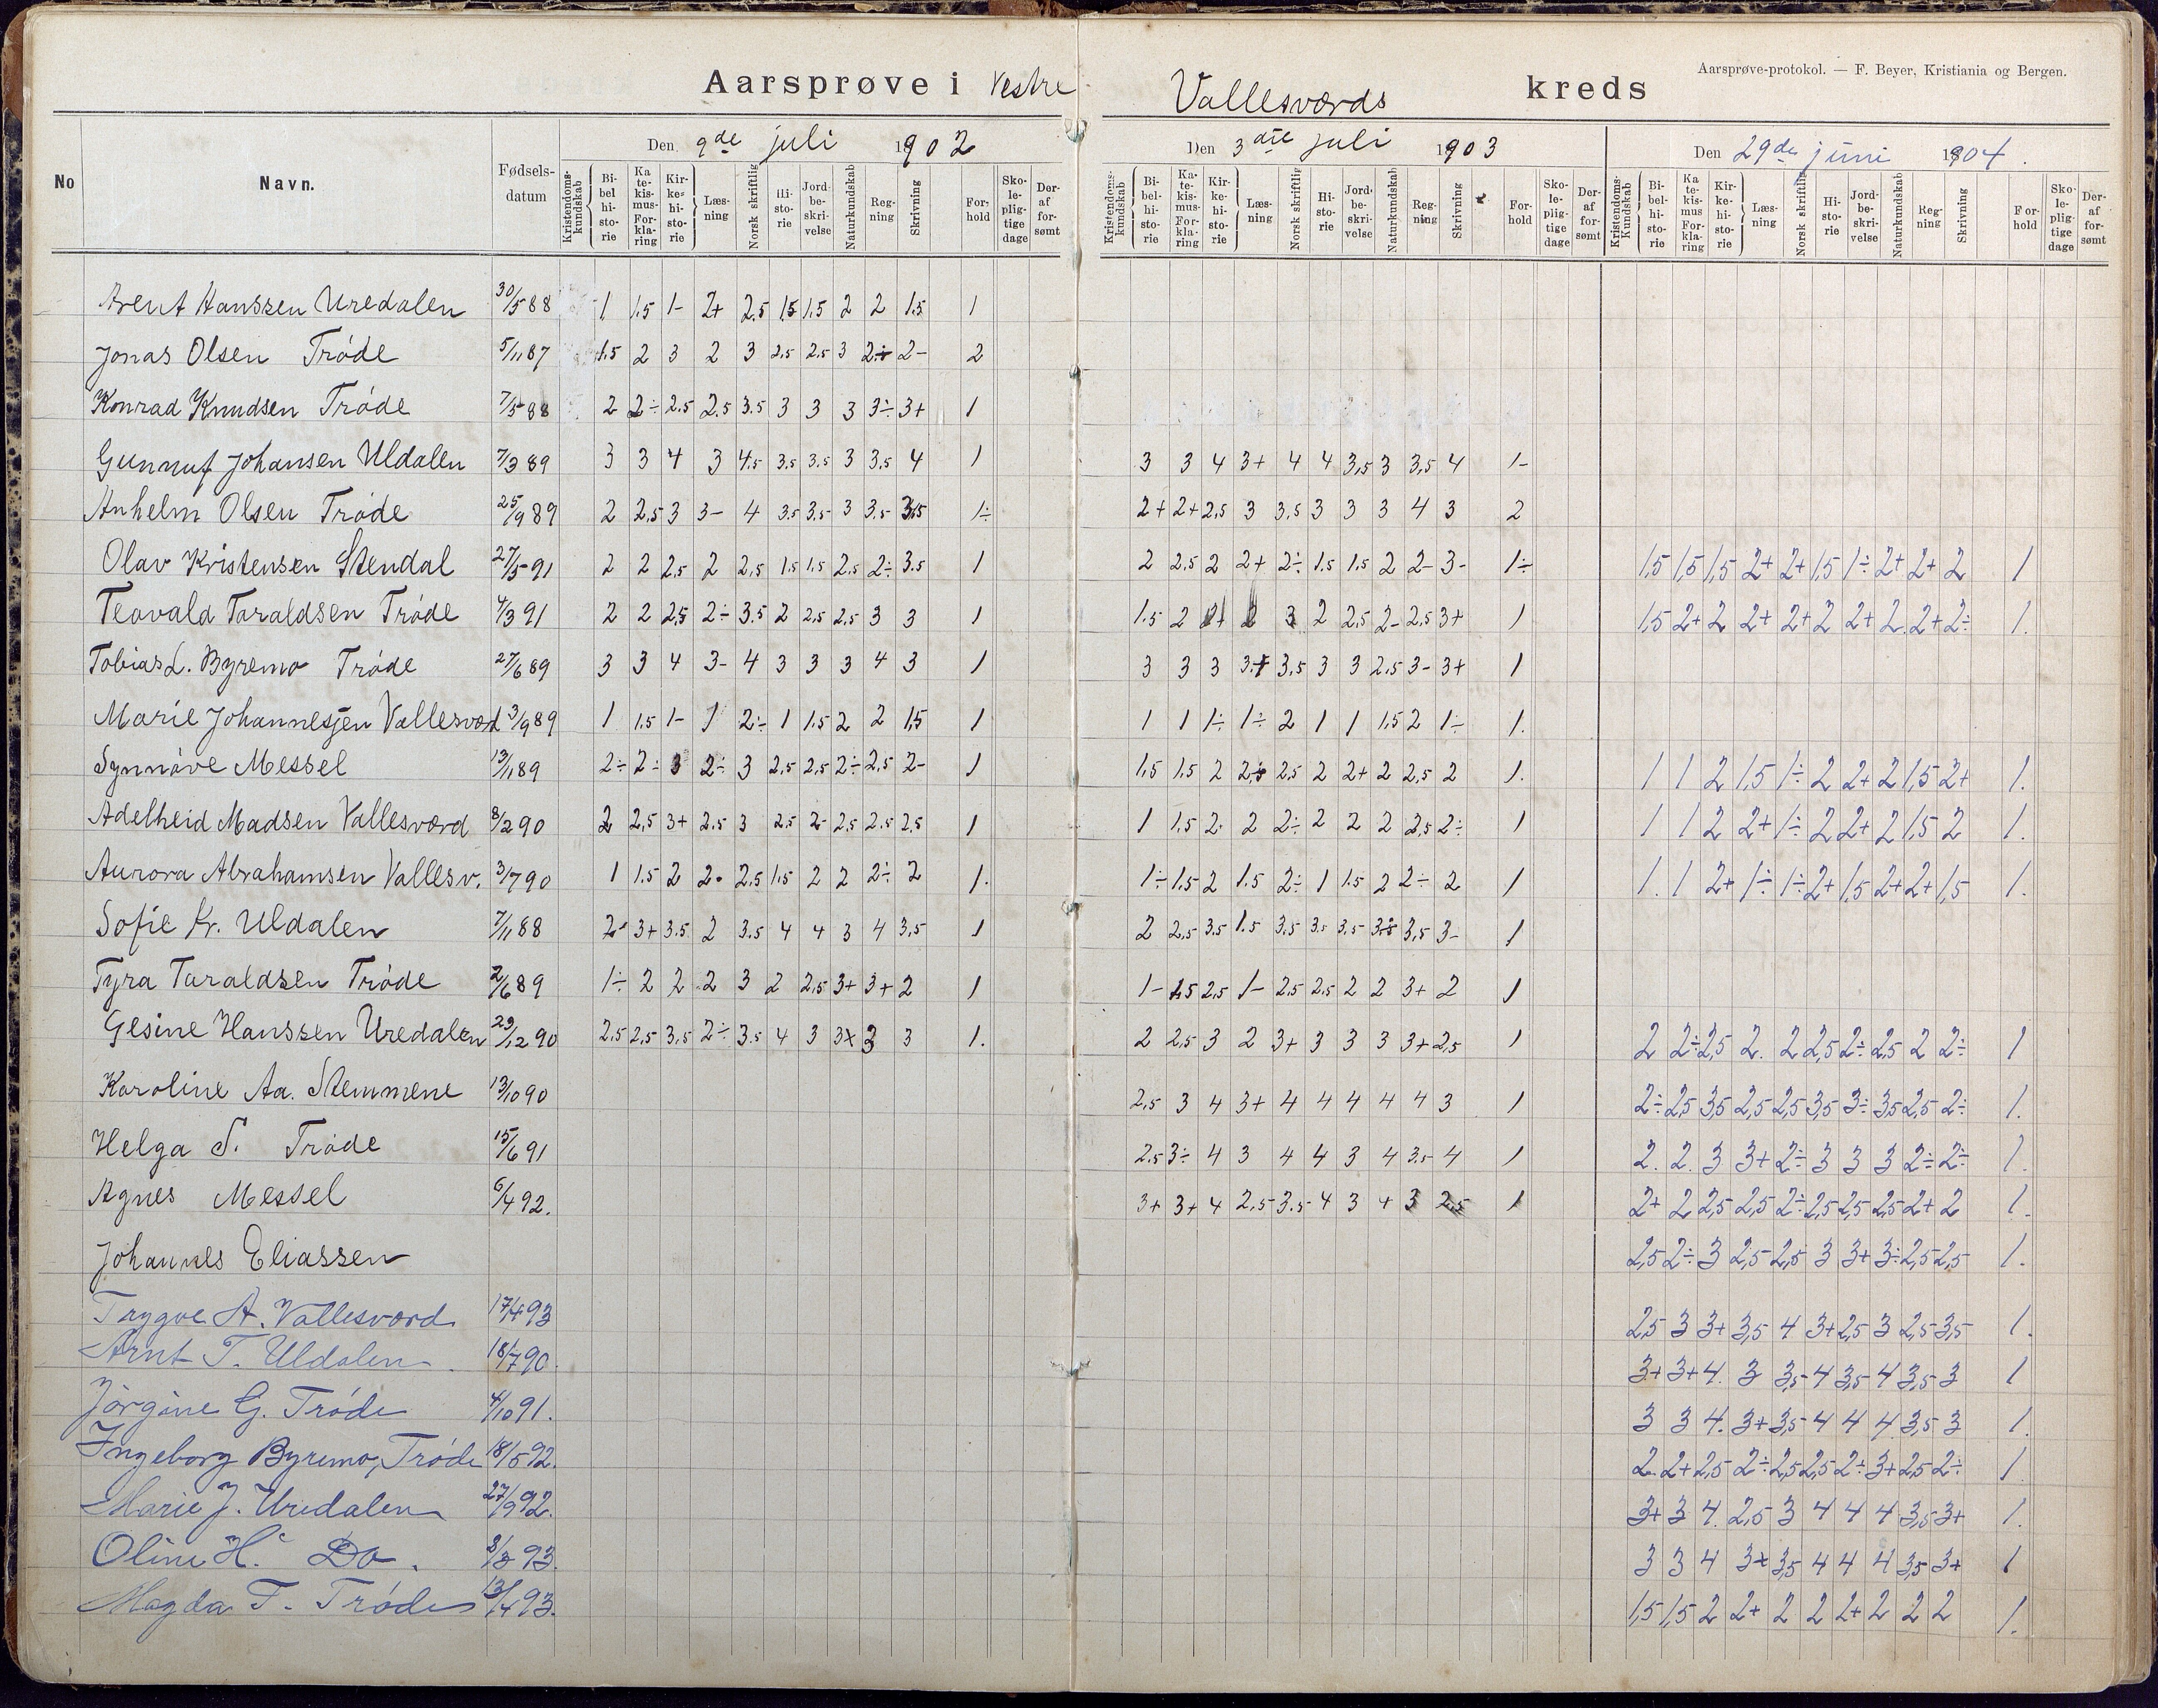 Aarsprøve-protokol. — F. Beyer, Kristiania og Bergen.
Aarsprøve i Vestre Vallesværds kreds
No Navn. Fødselsdatum
Den 9de juli 1902 Den 3die juli 1903 Den 29de juni 1904.
Kristendomskundskab Bibelhistorie Katekismus-Forklaring Kirkehistorie Læsning Norsk skriftlig Historie Jordbeskrivelse Naturkundskab Regning Skrivning Forhold Skolepligtige dage Deraf forsømt
Kristendomskundskab Bibelhistorie Katekismus-Forklaring Kirkehistorie Læsning Norsk skriftlig Historie Jordbeskrivelse Naturkundskab Regning Skrivning Forhold Skolepligtige dage Deraf forsømt
Kristendoms-Kundskab Bibelhistorie Katekismus Forklaring Kirkehistorie Læsning Norsk skriftlig Historie Jordbeskrivelse Naturkundskab Regning Skrivning Forhold Skolepligtige dage Deraf forsømt
Arent Hanssen Uredalen 30/5 88 1 1.5 1- 2+ 2.5 1.5 1.5 2 2 1.5 1
Jonas Olsen Tróde 5/11 87 1.5 2 3 2 3 2.5 2.5 3 2÷ 2- 2
Konrad Knudsen Tróde 7/5 88 2 2÷ 2.5 2.5 3.5 3 3 3 3÷ 3+ 1
Gunnuf Johansen Uldalen 7/3 89 3 3 4 3 4.5 3.5 3.5 3 3.5 4 1 3 3 4 3+ 4 4 3,5 3 3,5 4 1-
Anhelm Olsen Tróde 25/9 89 2 2.5 3 3- 4 3.5 3.5 3 3.5 3.5 1÷ 2+ 2+ 2,5 3 3,5 3 3 3 4 3 2
Olav Kristensen Stendal 27/5 91 2 2 2,5 2 2,5 1.5 1.5 2.5 2÷ 3.5 1 2 2.5 2 2+ 2÷ 1.5 1.5 2 2- 3- 1÷ 1,5 1,5 1,5 2+ 2+ 1,5 1÷ 2+ 2+ 2 1
Teovald Taraldsen Tróde 4/3 91 2 2 2,5 2÷ 3.5 2 2,5 2,5 3 3 1 1.5 2 2+ 2 3 2 2,5 2- 2,5 3+ 1 1,5 2+ 2 2+ 2+ 2 2+ 2 2+ 2÷ 1.
Tobias L. Byremo Tróde 27/6 89 3 3 4 3- 4 3 3 3 4 3 1 3 3 3 3+ 3,5 3 3 2.5 3- 3+ 1
Marie Johannesjen Vallesværd 3/9 89 1 1.5 1- 1 2÷ 1 1.5 2 2 1,5 1 1 1 1÷ 1÷ 2 1 1 1,5 2 1÷ 1.
Synnóve Messel 13/11 89 2÷ 2÷ 3 2÷ 3 2,5 2,5 2÷ 2,5 2- 1 1,5 1.5 2 2÷ 2,5 2 2+ 2 2,5 2 1. 1 1 2 1,5 1÷ 2 2+ 2 1,5 2+ 1.
Adelheid Madsen Vallesværd 8/2 90 2 2,5 3+ 2.5 3 2.5 2- 2,5 2.5 2,5 1 1 1.5 2 2 2÷ 2 2 2 2,5 2÷ 1 1 1 2 2+ 1÷ 2 2+ 2 1,5 2 1.
Aurora Abrahamsen Vallesv. 3/7 90 1 1.5 2 2. 2,5 1.5 2 2 2÷ 2 1. 1÷ 1.5 2 1.5 2÷ 1 1.5 2 2÷ 2 1 1. 1 2+ 1÷ 1÷ 2+ 1,5 2+ 2+ 1,5 1.
Sofie Kr. Uldalen 7/11 88 2- 3+ 3.5 2 3.5 4 4 3 4 3,5 1 2 2,5 3.5 1.5 3.5 3.5 3.5 3÷ 3,5 3- 1
Tyra Taraldsen Tróde 2/6 89 1÷ 2 2 2 3 2 2,5 3+ 3+ 2 1 1- 1.5 2,5 1- 2.5 2.5 2 2 3+ 2 1
Gesine Hanssen Uredalen 29/12 90 2,5 2,5 3,5 2÷ 3.5 4 3 3+ 3 3 1. 2 2,5 3 2 3+ 3 3 3 3+ 2,5 1 2 2÷ 2,5 2. 2 2,5 2÷ 2,5 2 2÷ 1
Karoline Aa. Stemmene 13/10 90 2,5 3 4 3+ 4 4 4 4 4 3 1 2÷ 2,5 3,5 2,5 2,5 3,5 3÷ 3,5 2,5 2÷ 1.
Helga S. Tróde 15/6 91 2.5 3÷ 4 3 4 4 3 4 3.5 4 1 2. 2. 3 3+ 2÷ 3 3 3 2÷ 2÷ 1.
Agnes Messel 6/4 92. 3+ 3+ 4 2,5 3.5 4 3 4 3 2,5 1 2+ 2 2,5 2,5 2÷ 2,5 2,5 2,5 2+ 2 1.
Johannes Eliassen 2,5 2÷ 3 2,5 2,5 3 3+ 3÷ 2,5 2,5 1.
Trygve A. Vallesværd. 17/4 93 2,5 3 3+ 3,5 4 3+ 2,5 3 2,5 3,5 1.
Arnt T. Uldalen 18/7 90. 3+ 3+ 4. 3 3,5 4 3,5 4 3,5 3 1
Jórgine G. Tróde 4/10 91. 3 3 4. 3+ 3,5 4 4 4 3,5 3 1.
Ingeborg Byremo, Tróde 18/5 92. 2. 2+ 2,5 2÷ 2,5 2,5 2÷ 3+ 2,5 2÷ 1
Marie J. Uredalen 27/9 92. 3+ 3 4. 2,5 3 4 4 4 3,5 3+ 1.
Oline H. Do. 8/3 93. 3 3 4 3+ 3,5 4 4 4 3,5 3+ 1
Magda T. Tróde 13/4 93. 1,5 1,5 2 2+ 2 2 2+ 2 2 2 1.